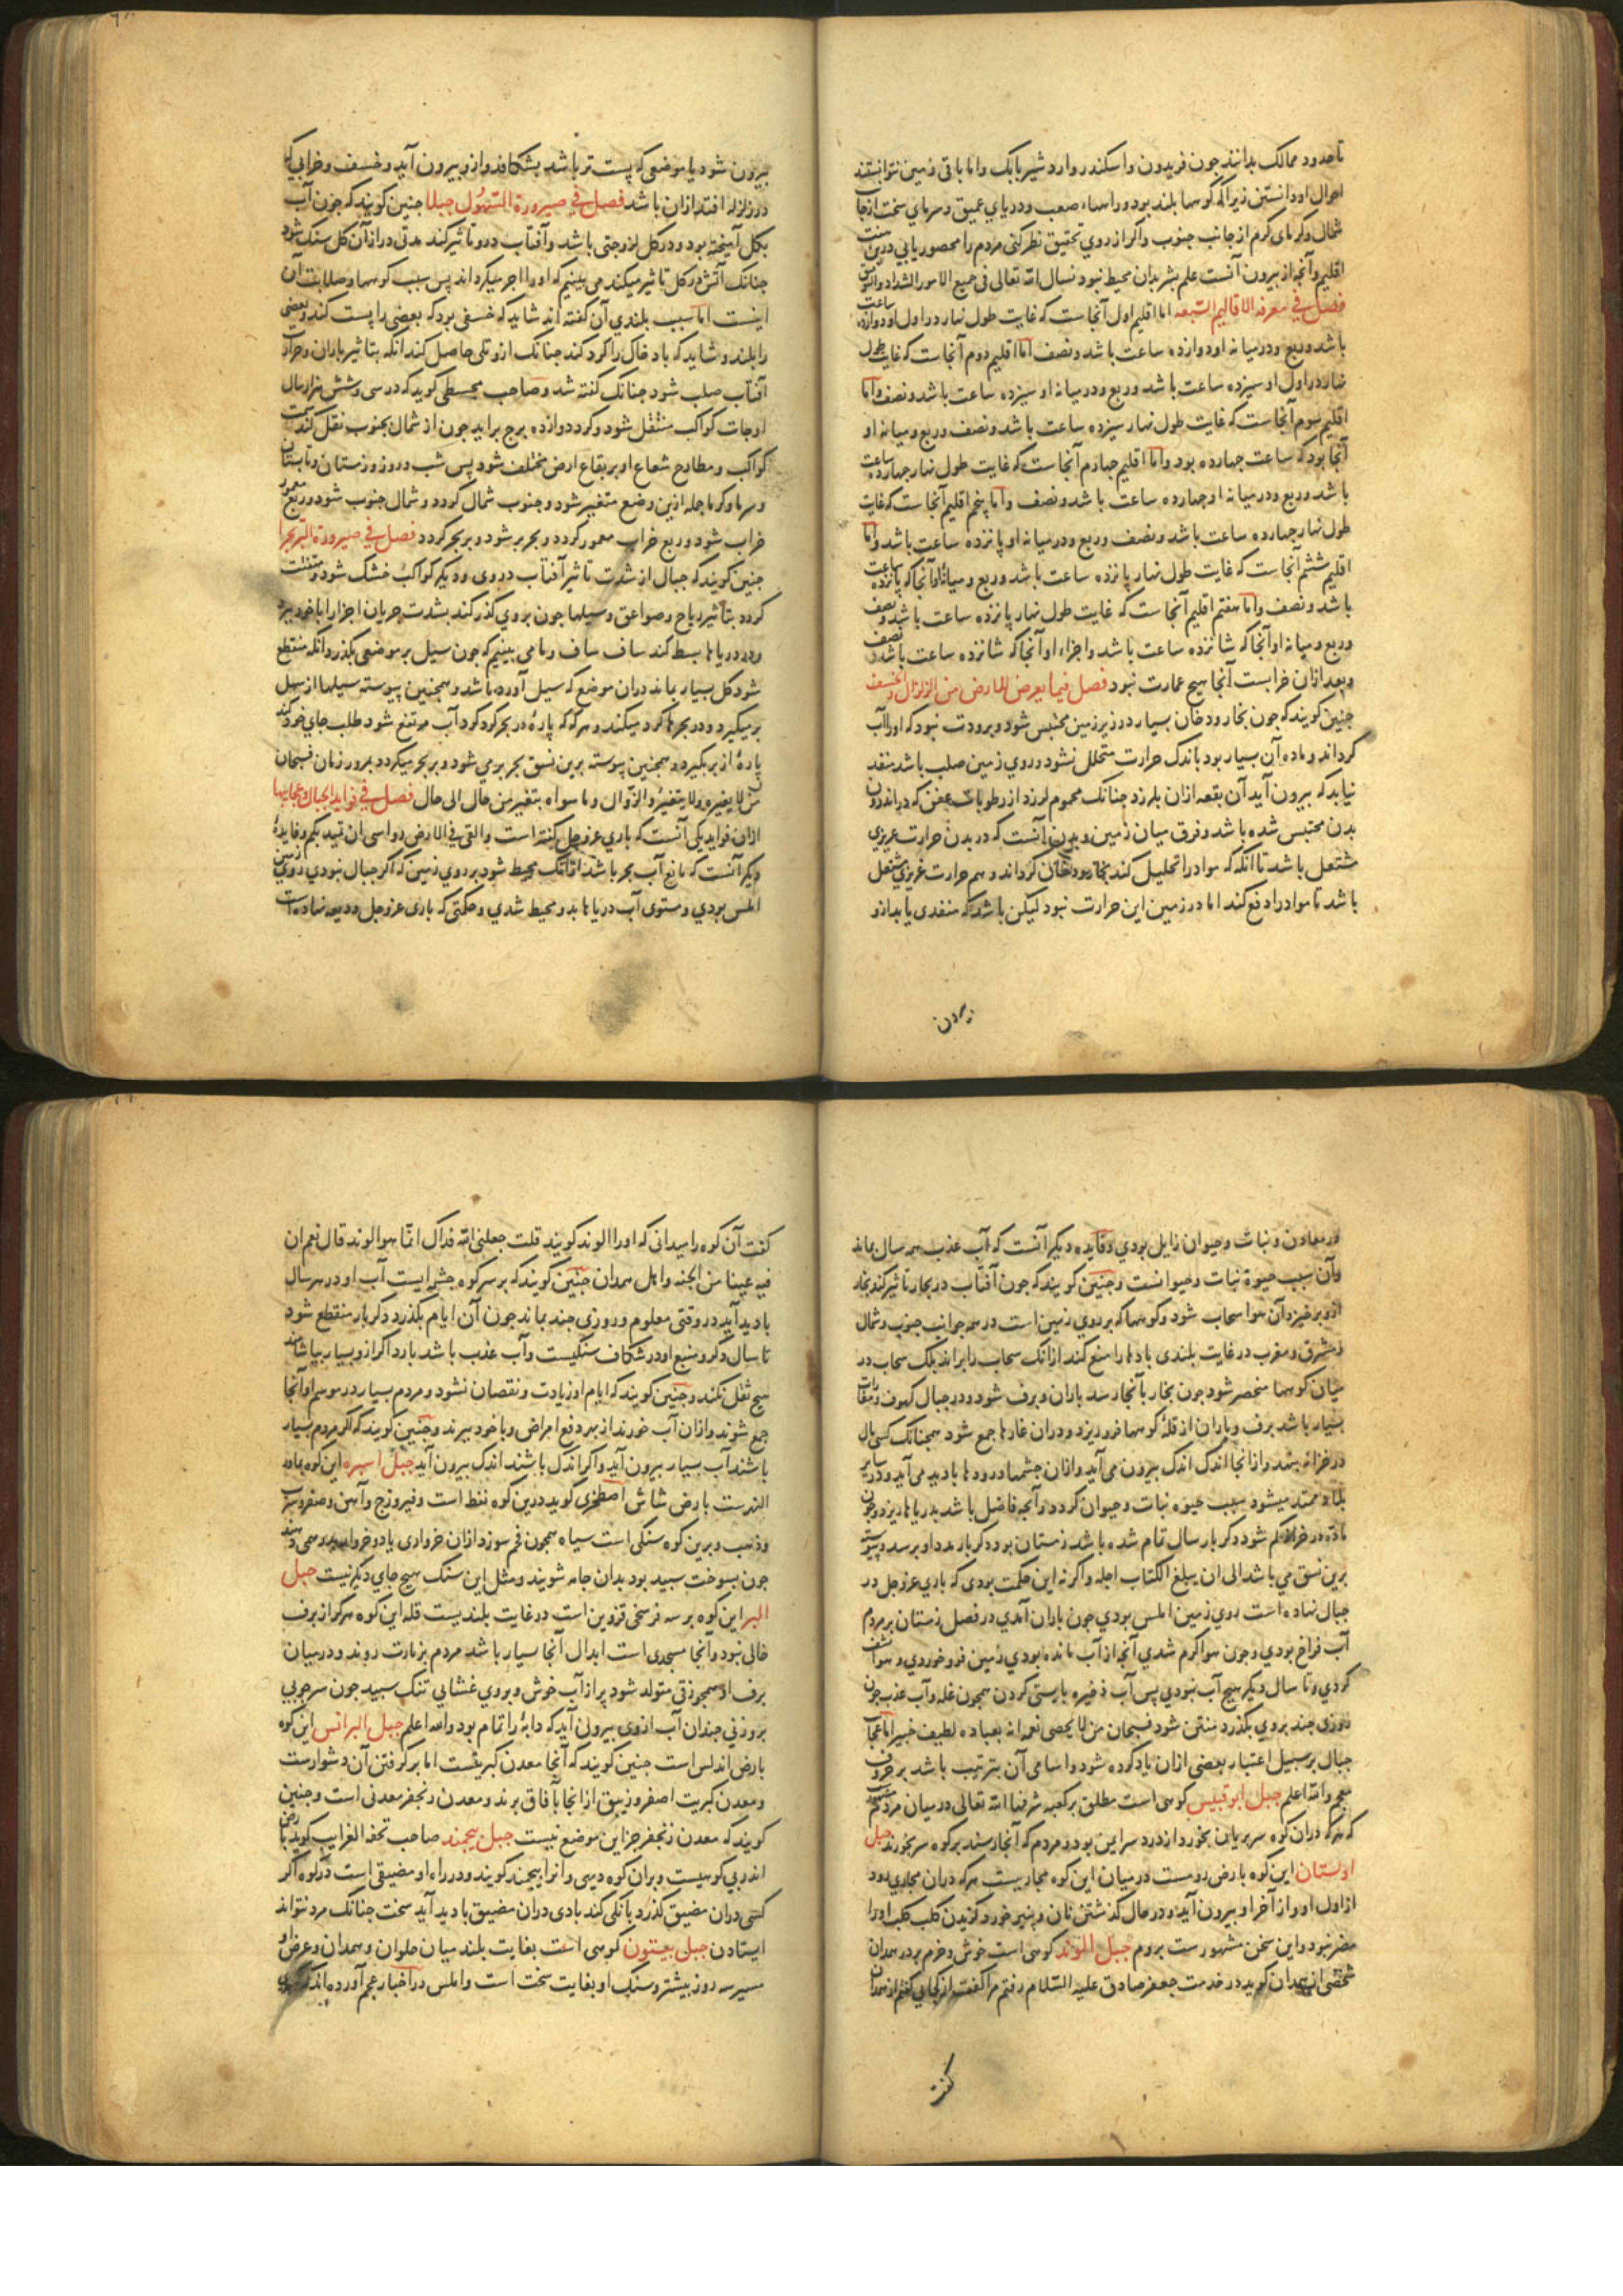 تا حدود ممالک بدانند جون فریدون واسکندر واردشیر بابک واما باقی زمین نتوانستند
احوال او دانستن زیرا که کوهها بلند بود وراهها صعب ودریای عمیق وسرمای سخت از جانب
شمال وکرمای کرم از جانب جنوب واکر از روی تحقیق نظر کنی مردم را محصور یابی درین هفت
اقلیم وآنچه از بیرون آنست علم بشر بدان محیط نبود نسال الله تعالی فی جمیع الامور الشداد والتوفیق
فصل فی معرفه الاقالیم السبعه اما اقلیم اول آنجاست که غایت طول نهار در اول او دوازده ساعت
باشد وربع ودر میانه او دوازده ساعت باشد ونصف اما اقلیم دوم آنجاست که غایت طول
نهار در اول او سیزده ساعت باشد وربع ودر میانه او سیزده ساعت باشد ونصف واما
اقلیم سوم آنجاست که غایت طول نهار سیزده ساعت باشد ونصف وربع ومیانه او
آنجا بود که ساعت جهارده بود واما اقلیم جهارم آنجاست که غایت طول نهار جهارده ساعت
باشد وربع ودر میانه او جهارده ساعت باشد ونصف واما پنجم اقلیم آنجاست که غایت
طول نهار جهارده ساعت باشد ونصف وربع ودر میانه او پانزده ساعت باشد واما
اقلیم ششم آنجاست که غایت طول نهار پانزده ساعت باشد وربع ومیانه او آنجا که پانزده ساعت
باشد ونصف واما هفتم اقلیم آنجاست که غایت طول نهار پانزده ساعت باشد ونصف
وربع ومیانه او آنجا که شانزده ساعت باشد واجزاء او آنجا که شانزده ساعت باشد ونصف
وبعد ازان خرابست آنجا هیچ عمارت نبود فصل فیما یعرض للارض من الزلزال والخسف
جنین کویند که جون بخار ودخان بسیار در زیر زمین محتبس شود وبرودت نبود که اورا آب
کرداند وماده آن بسیار بود باندک حرارت متحلل نشود وروی زمین صلب باشد منفذ
نیابد که بیرون آید آن بقعه ازان بلرزد جنانک محموم لرزد از رطوبات عفن که در اندرون
بدن محتبس شده باشد وفرق میان زمین وبدن آنست که در بدن حرارت غریزی
مشتعل باشد تا آنکه که مواد را تحلیل کند بخار ودخان کرداند وهم حرارت غریزی مشتعل
باشد تا مواد را دفع کند اما در زمین این حرارت نبود لیکن باشد که منفدی یابد ازو
بیرون
بیرون شود یا موضعی که پست تر باشد بشکافد وازو بیرون آید وخسف وخرابی که
در زلزله افتد ازان باشد فصل فی صیرورة السهول جبلا جنین کویند که جون آب
بکل آمیخته بود ودر کل لزوجتی باشد وآفتاب درو تاثیر کند مدتی دراز آن کل سنک شود
جنانک آتش در کل تاثیر میکند می بینیم که اورا آجر میکرداند پس سبب کوهها وصلابت آن
اینست اما سبب بلندی آن کفته اند شاید که خسفی بود که بعضی را پست کند وبعضی
را بلند وشاید که باد خاک را کرد کند جنانک ازو تلی حاصل کند آنکه بتاثیر باران وحرارت
آفتاب صلب شود جنانک کفته شد وصاحب مجسطی کوید که در سی وشش هزار سال
اوجات کواکب منتقل شود وکرد دوازده برج براید جون از شمال بجنوب نقل کند سمت
کواکب ومطارح شعاع او بر بقاع ارض مختلف شود پس شب وروز وزمستان وتابستان
وسرما وکرما جمله ازین وضع متغیر شود وجنوب شمال کردد وشمال جنوب شود وربع معمور
خراب شود وربع خراب معمور کردد وبحر بر شود وبر بحر کردد فصل فی صیرورة البر بحرا
جنین کویند که جبال از شدت تاثیر آفتاب در وی ودیکر کواکب خشک شود ومتفتت
کردد بتاثیر ریاح وصواعق وسیلها جون بروی کذر کند بشدت جریان اجزا را با خود برد
ودر دریاها بسط کند ساف ساف وما می بینیم که جون سیل بر موضعی بکذرد آنکه منقطع
شود کل بسیار بماند دران موضع که سیل آورده باشد وهمجنین پیوسته سیلها از سهل
بر میکیرد ودر بحرها کرد میکند وهرکه که پاره در بحر کرد کرد آب مرتفع شود طلب جای خود کند
پاره از بر بکیرد وهمجنین پیوسته برین نسق بحر بر می شود وبر بحر میکردد بمرور زمان فسبحان
من لا یغیر ولا یتغیر والزوال وما سواه بتغیر من حال الی حال فصل فی فواید الجبال وعجایبها
ازان فواید یکی آنست که باری عز وجل کفته است والقی فی الارض رواسی ان تمید بکم وفایده
دیکر آنست که مانع آب بحر باشد ازانک محیط شود بر روی زمین که اکر جبال نبودی روی زمین
املس بودی ومستوی آب دریاها بدو محیط شدی وحکمتی که باری عز وجل ودیعه نهاده است
در معادن ونبات وحیوان زایل بودی وفایده دیکر آنست که آب عذب همه سال بماند
وآن سبب حیوة نبات وحیوانست وجنین کویند که جون آفتاب در بحار تاثیر کند بخار
ازو بر خیزد آن هوا سحاب شود وکوهها که بر روی زمین است در همه جوانب جنوب وشمال
ومشرق ومغرب در غایت بلندی بادها را منع کند ازانک سحاب را براند بلک سحاب در
میان کوهها منحصر شود جون بخار بآنجا رسد باران وبرف شود ودر جبال کهوف ومغارات
بسیار باشد برف وباران از قله کوهها فرو ریزد ودران غارها جمع شود همجنانک کسی مال
در خزانه بنهد وازانجا اندک اندک بیرون می آید وازان جشمها ورودها بادید می آید ودر سایر
بلاد ممتد میشود سبب حیوه نبات وحیوان کردد وآنچه فاضل باشد بدریاها ریزد وجون
ماده در خزانه کم شود دکر بار سال تمام شده باشد زمستان بود دکر بار مدد او برسد وپیوسته
برین نسق می باشد الی ان یبلغ الکتاب اجله واکر نه این حکمت بودی که باری عز وجل در
جبال نهاده است روی زمین املس بودی جون باران آمدی در فصل زمستان بر مردم
آب فراخ بودی وجون هوا کرم شدی آنچ از آب مانده بودی زمین فرو خوردی وهوا نشف
کردی وتا سال دیکر هیچ آب نبودی پس آب ذخیره بایستی کردن همجون غله وآب عذب جون
روزی جند بروی بکذرد منتن شود فسبحان من لا یحصی نعمه انه بعباده لطیف خبیر اما عجایب
جبال بر سبیل اعتبار بعضی ازان یاد کرده شود واسامی آن بترتیب باشد بر حروف
معجم والله اعلم جبل ابوقبیس کوهی است مطلق بر کعبه شرفها الله تعالی در میان مردم مشهور
که هرکه دران کوه سر بریان بخورد از درد سر ایمن بود ومردم که آنجا رسند بر کوه سر بخورند جبل
اولستان این کوه بارض رومست در میان این کوه مجاریست هرکه دران مجاری رود
از اول او واز آخر او بیرون آید ودر حال کذشتن نان وپنیر خورد وکزیدن کلب کلب اورا
مضر نبود واین سخن مشهورست بروم جبل الوند کوهی است خوش وخرم بر در همدان
شخصی از همدان کوید در خدمت جعفر صادق علیه السلام رفتم مرا کفت از کجایی کفتم از همدان
کفت
کفت آن کوه را میدانی که اورا الوند کویند قلت جعلنی الله فداک انما هو الوند قال نعم ان
فیه عینا من الجنه واهل همدان جنین کویند که بر سر کوه جشمه ایست آب او در هر سال
بادید آید در وقتی معلوم وروزی جند بماند جون آن ایام بکذرد دکر بار منقطع شود
تا سال دکر ومنبع او در شکاف سنکیست وآب عذب باشد بارد اکر ازو بسیار بیاشامند
هیچ ثقل نکند وجنین کویند که ایام او زیادت ونقصان نشود ومردم بسیار در موسم او آنجا
جمع شوند وازان آب خورند از بهر دفع امراض وبا خود ببرند وجنین کویند که اکر مردم بسیار
باشند آب بسیار بیرون آید واکر اندک باشند اندک بیرون آید جبل اسبره این کوه بماوراء
النهرست بارض شاش اصطخری کوید درین کوه نفط است وفیروزج وآهن وصفر وسرب
وذهب وبرین کوه سنکی است سیاه همجون فحم سوزد ازان خرواری یا دو خروار بدرهمی دهند
جون بسوخت سبید بود بدان جامه شویند ومثل این سنک هیچ جای دیکر نیست جبل
البر این کوه بر سه فرسخی قزوین است در غایت بلندیست قله این کوه هرکز از برف
خالی نبود وآنجا مسجدی است ابدال آنجا بسیار باشد مردم بزیارت روند ودر میان
برف او همجو زقی متولد شود پر از آب خوش وبروی غشایی تنک سبید جون سر جوبی
بروزنی جندان آب ازوی بیرون آید که دابه را تمام بود والله اعلم جبل البرانس این کوه
بارض اندلس است جنین کویند که آنجا معدن کبریتست اما بر کرفتن آن دشوارست
ومعدن کبریت اصفر وزیبق ازانجا بآفاق برند ومعدن زنجفر معدنی است وجنین
کویند که معدن زنجفر جز این موضع نیست جبل بیجند صاحب تحفه الغرایب کوید بارض
اندربی کوهیست وبران کوه دیهی وانرا بیجند کویند ودر راه او مضیقی است در کوه اکر
کسی دران مضیق کذرد بانکی کند بادی دران مضیق بادید آید سخت جنانک مرد نتواند
ایستادن جبل بیستون کوهی است بغایت بلند میان حلوان وهمدان وعرض او
مسیر سه روز بیشتر وسنک او بغایت سخت است واملس در اخبار عجم آورده اند که